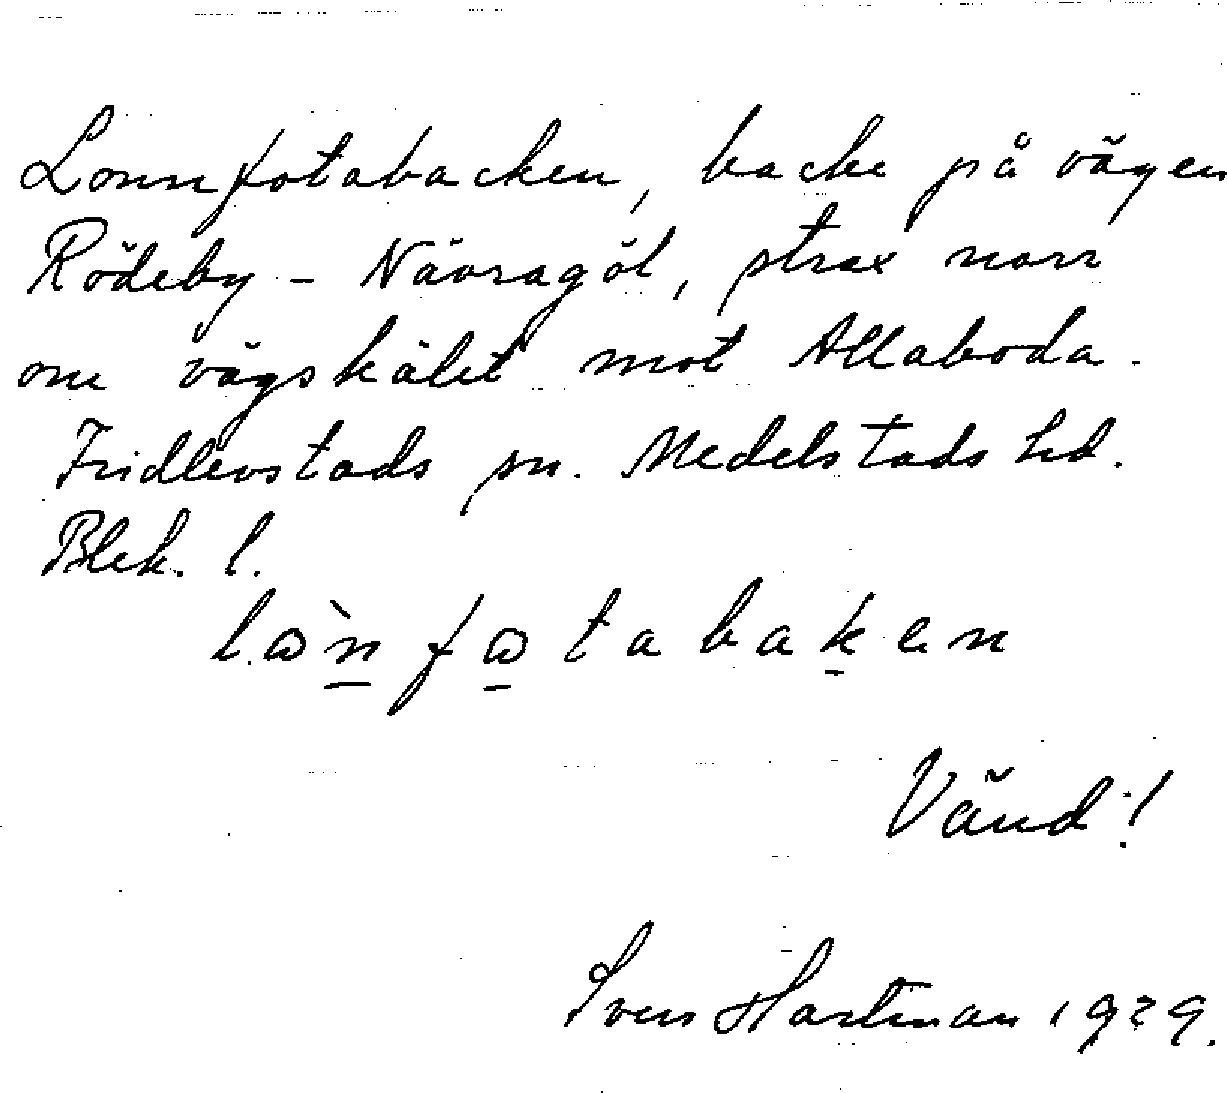 Lonnfotabacken, backe på vägen
Rödeby - Nävragöl, strax norr
om vägskälet mot Allaboda.
Fridlevstads sn. Medelstads hd.
Blek. l.
Vänd!
Sven Hartman 1929.